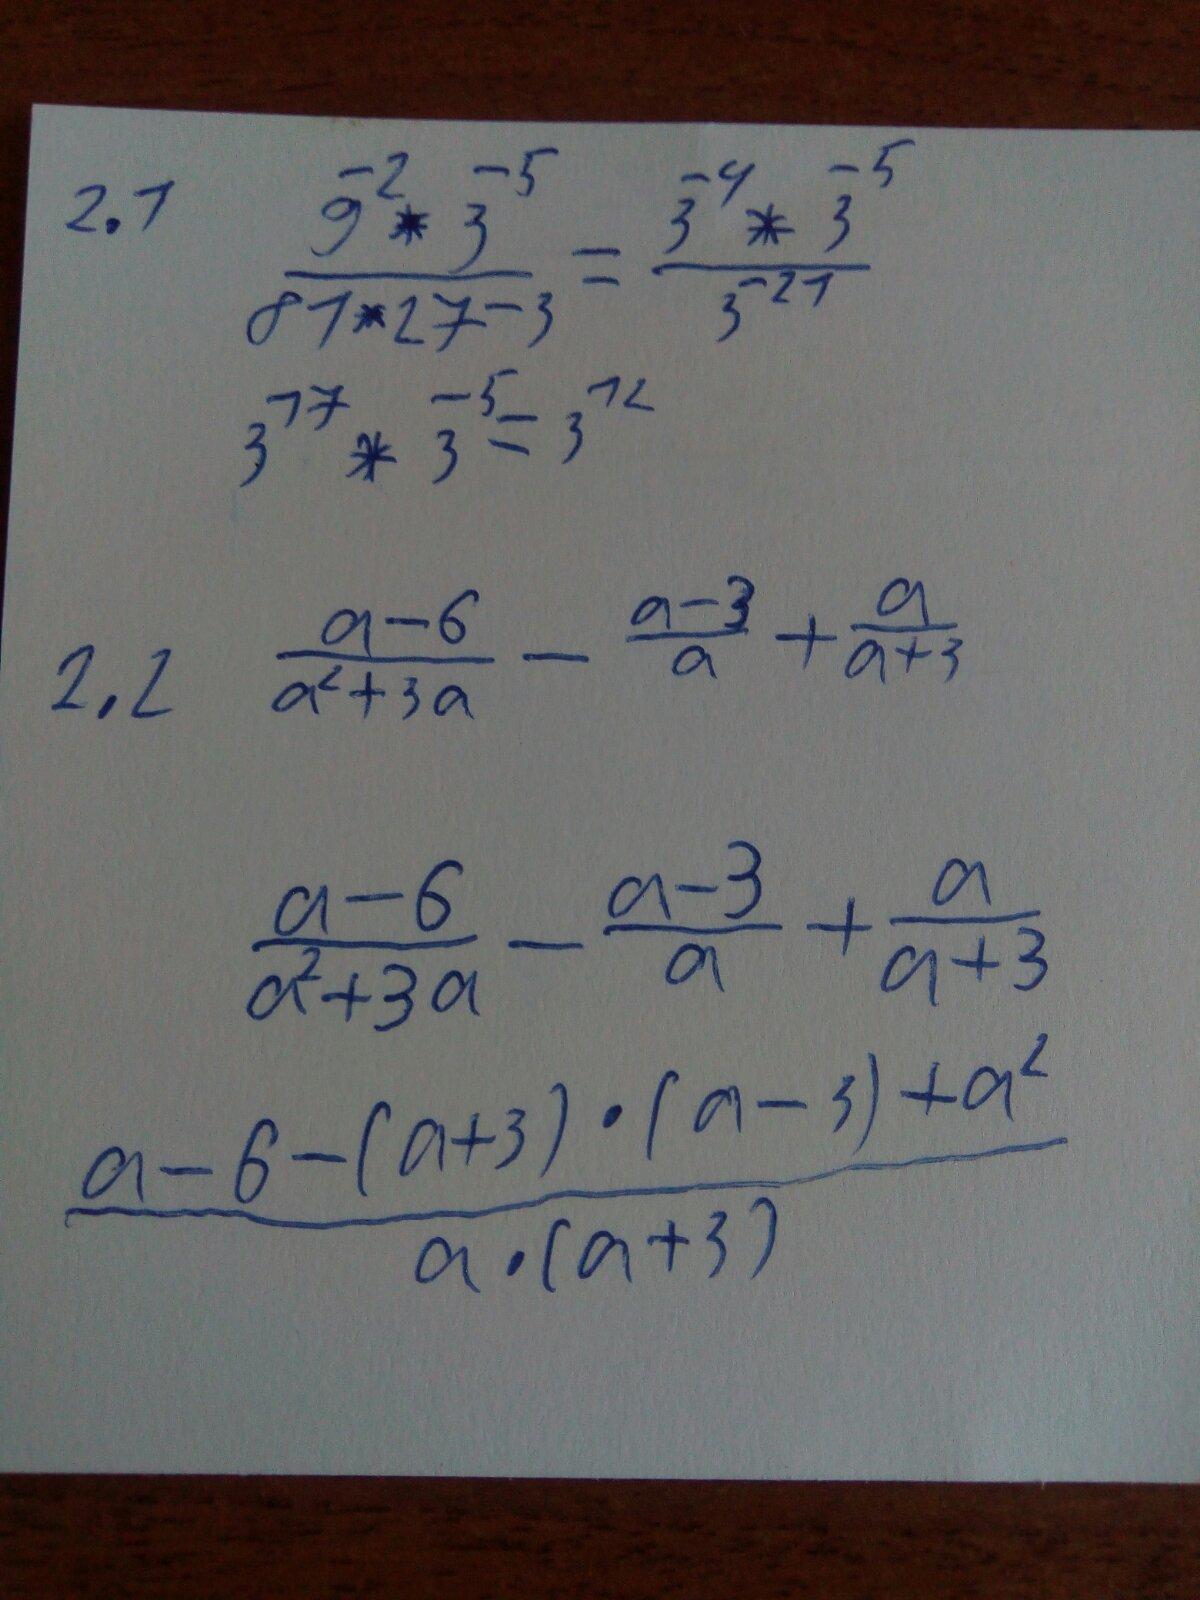 2.1 (9^-2 * 3^-5)/(81*27-3) = (3^-4 * 3^-5)/(3^-21)
3^17 * 3^-5 = 3^12
2.2 (a-6)/(a²+3a) - (a-3)/a + a/(a+3)
(a-6)/(a²+3a) - (a-3)/a + a/(a+3)
(a-6-(a+3)·(a-3)+a²)/(a·(a+3))